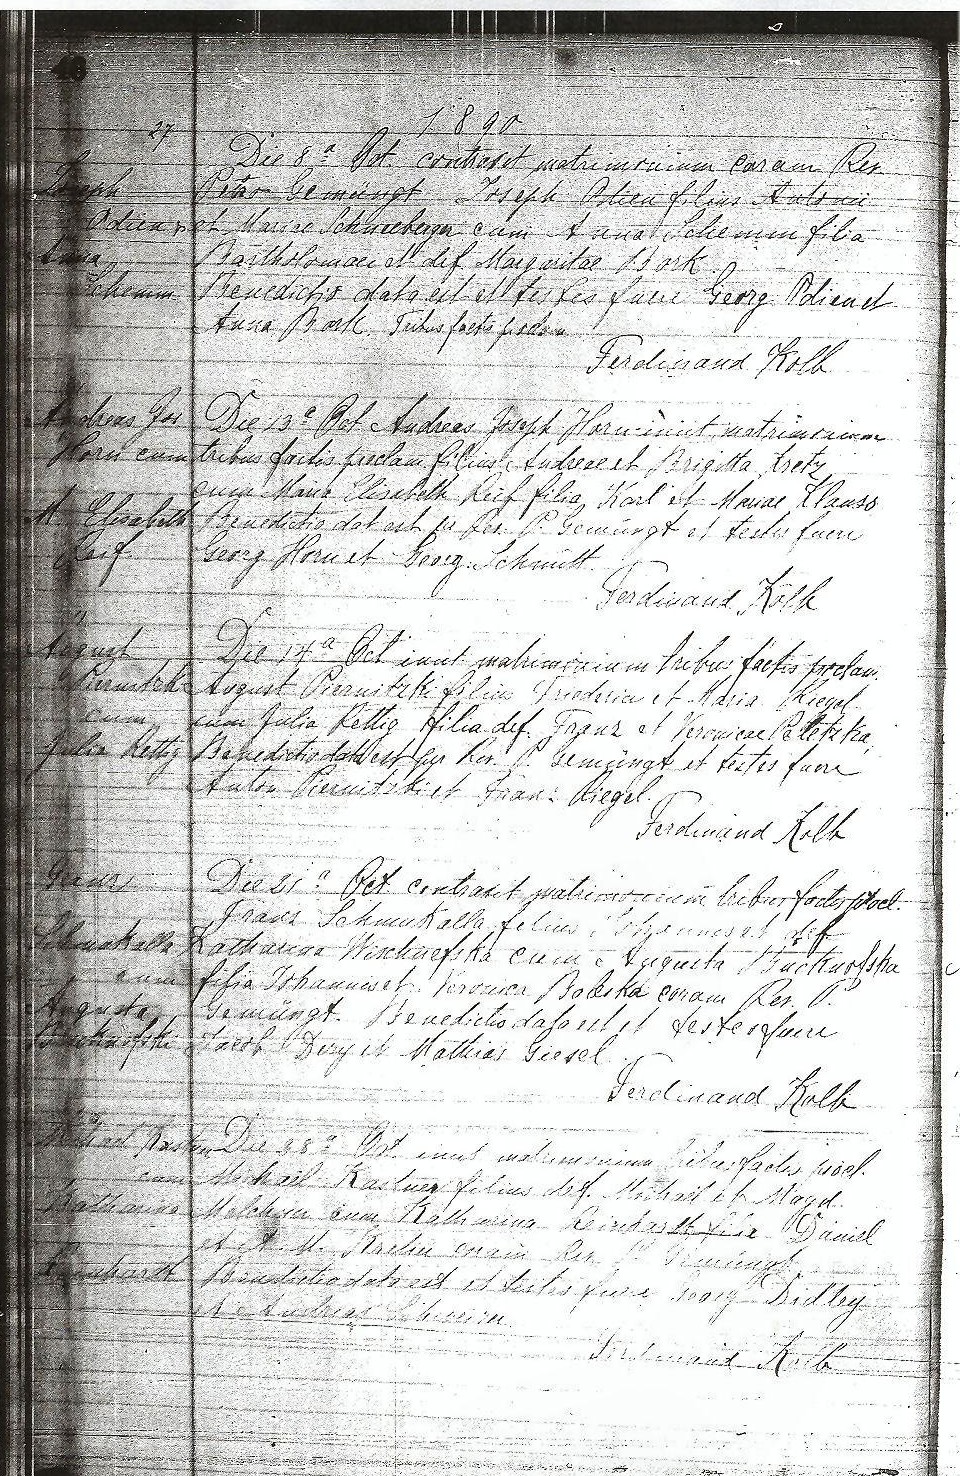 48
1890
27
Joseph
Odien
Anna
Schemm
Die 8ª Oct. contraxit matrimonium coram Rev.
Peter Gemüngt Joseph Odien filius Antonii
et Mariae Schneeberger cum Anna Schemm filia
Bartholomaei et def. Margaritae Bork.
Benedictio data est et testes fuere Georg Odien et
Anna Bork. Tribus factis proclam.
Ferdinand Kolb
Andreas Jos
Horn cum
M. Elisabeth
Reif
Die 13ª Oct Andreas Joseph Horn iniit matrimonium
tribus factis proclam. filius Andreae et Brigitta
cum Maria Elisabeth Reif filia Karl et Mariae Klauss
Benedictio dat est Rev. P. Gemüngt et testes fuere
Georg Horn et Georg Schmitt.
Ferdinand Kolb
"
August
Piernitzki
cum
Julia Rettig
Die 14ª Oct iniit matrimonium tribus factis proclam.
August Piernitzki filius Friederici et Maria Riegel
cum Julia Rettig filia def. Franz et Veronicae Peletzka,
Benedictio data est per Rev. P. Gemüngt et testes fuere
Anton Piernitzki et Franz Riegel.
Ferdinand Kolb
Franz
Schmukalla
cum
Augusta
Die 21ª Oct. contraxit matrimonium tribus factis procl.
Franz Schmukalla filius Johannes et def.
Katharina cum Augusta
filia Johannes et Veronica coram Rev. P.
Gemüngt. Benedictio data est et testes fuere
Jacob Dery et Mathias Giesel.
Ferdinand Kolb
Michael Kastner
cum
Katharina
Reinhardt
Die 28ª Oct. iniit matrimonium tribus factis procl.
Michael Kastner filius def. Michael et Magd.
cum Katharina Reinhardt filia Daniel
et A. M. coram Rev. P. Gemüngt
Benedictio data est et testes fuere Georg Bidley
et Andreas
Ferdinand Kolb